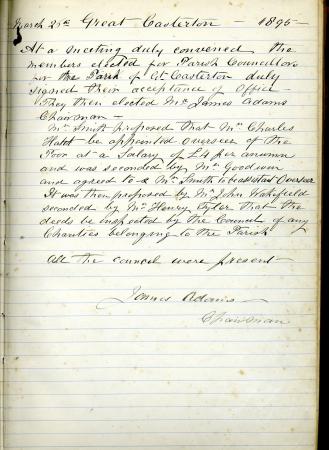 March 25th Great Casterton - 1895 -
At a meeting duly convened the
members elected for Parish Councillors
for the Parish of Gt Casterton duly
signed their acceptance of Office -
They then elected Mr James Adams
Chairman -
Mr Smith proposed that Mr Charles
be appointed overseer of the
Poor at a Salary of £4 per annum
and was seconded by Mr Goodwin
and agreed to & Mr Smith to be assistant Overseer
It was then proposed by Mr John Wakefield
seconded by Mr Henry Tyler that the
deeds be inspected by the Council of any
Charities belonging to the Parish
All the council were present -
James Adams
Chairman